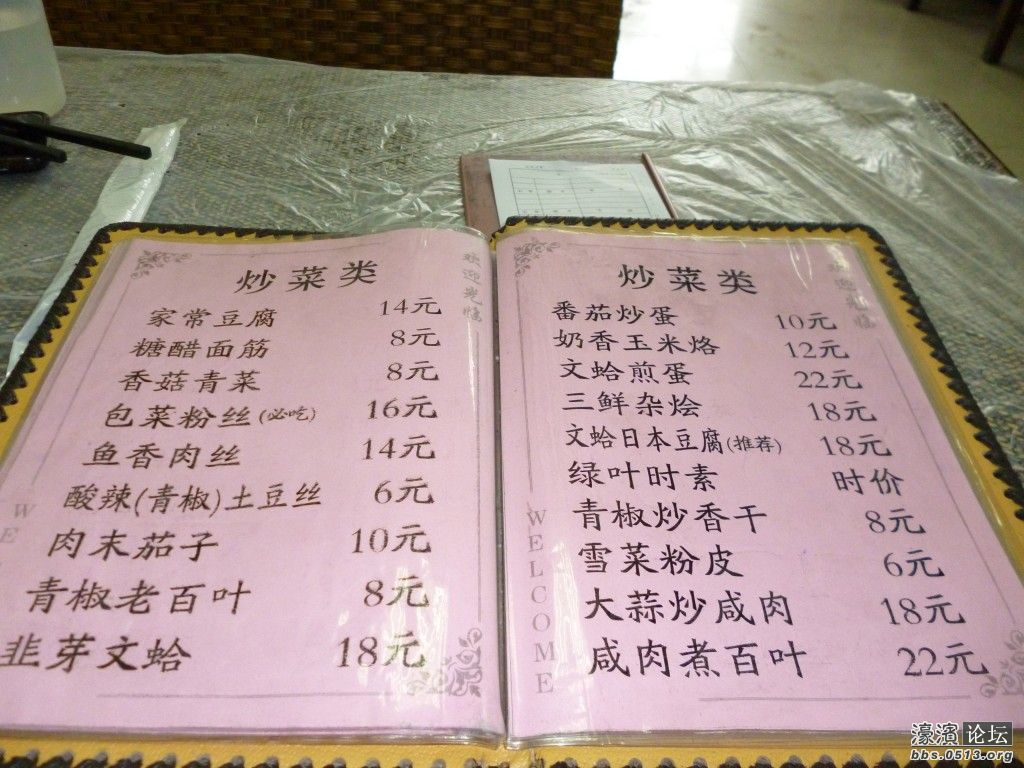 炒菜类
欢迎光临
家常豆腐 14元
糖醋面筋 8元
香菇青菜 8元
包菜粉丝(必吃) 16元
鱼香肉丝 14元
酸辣(青椒)土豆丝 6元
肉末茄子 10元
青椒老百叶 8元
韭芽文蛤 18元
WE
炒菜类
欢迎光临
番茄炒蛋 10元
奶香玉米烙 12元
文蛤煎蛋 22元
三鲜杂烩 18元
文蛤日本豆腐(推荐) 18元
绿叶时素 时价
青椒炒香干 8元
雪菜粉皮 6元
大蒜炒咸肉 18元
咸肉煮百叶 22元
WELCOME
濠滨论坛
bbs.0513.org